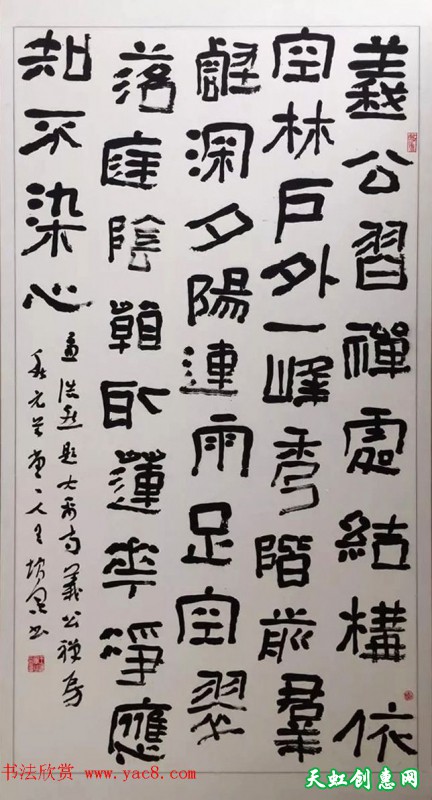 義公習禪處結構依
空林戶外一峰秀階前羣
壑深夕陽連雨足空翠
落庭陰看取蓮華淨應
知不染心
孟浩然題大禹寺義公禪房
书法欣赏 www.yac8.com
天虹创惠网